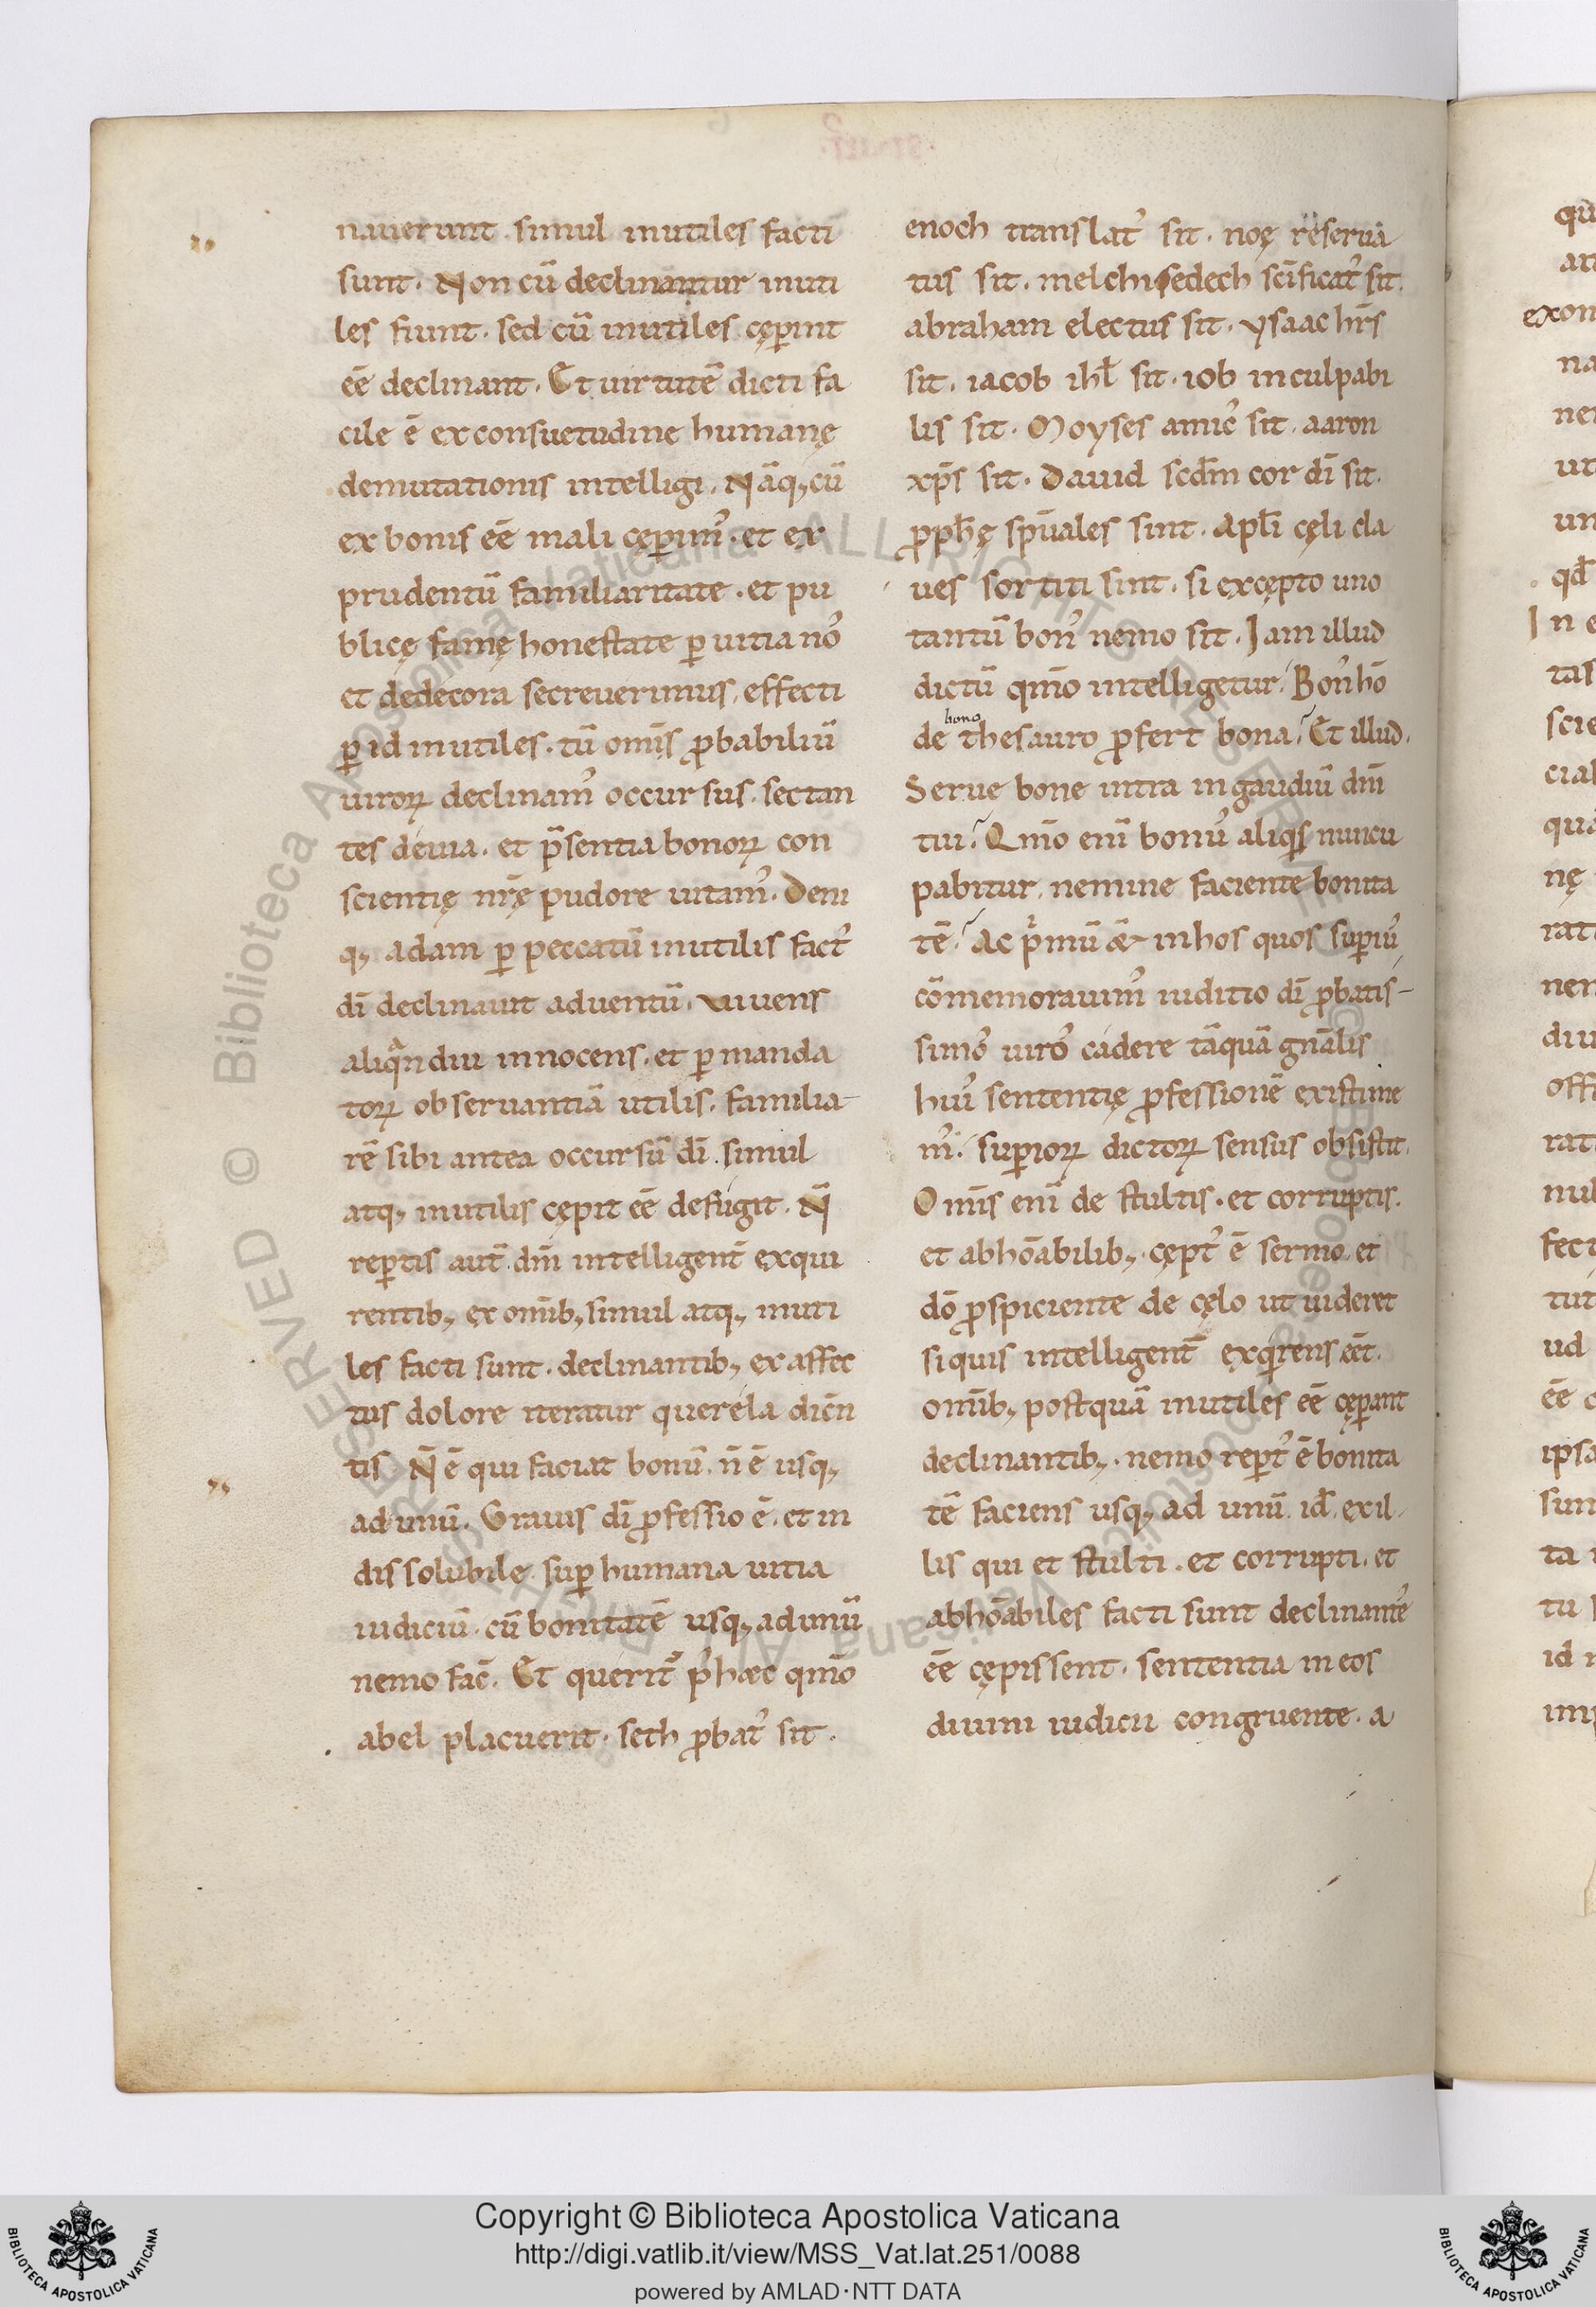 nauerunt simul inutiles facti
sunt. Non cū declinantur inuti
les fiunt. sed cū inutiles cęperint
eē declinant. Et uirtutē dicti fa
cile ē ex consuetudine humanę
demutationis intelligi. Nāq; cū
ex bonis eē mali cęperim᾽. et ex
prudentū familiaritate. et pu
blicę famę honestate ꝑ uitia nō
et dedecora secreuerimus. effecti
ꝑ id inutiles. tū om̄is ꝓbabiliū
uiroꝝ declinam᾽ occursus. sectan
tes deuia. et p̄sentia bonoꝝ con
scientię nr̄ę pudore uitam᾽. Deni
q; adam ꝑ peccatū inutilis fact᾽
dī declinauit aduentū. viuens
aliqᵃndiu innocens. et ꝑ manda
toꝝ obseruantiā utilis. familia-
rē sibi antea occursū dī. simul
atq; inutilis cępit eē defugit. N̄
reꝑtis aut̄ dn̄i intelligent᷑ exqui
rentib; ex omīb; simul atq; inuti
les facti sunt. declinantib; ex affec
tus dolore iteratur querela dicēn
tis N̄ ē qui faciat bonū. n̄ ē usq;
ad unū. Grauis dī ꝓfessio ē. et in
dissolubile suꝑ humana uitia
iudiciū. cū bonitatē usq; ad unū
nemo fac̄. Et querit᷑ p᾽ hæc qm̄o
abel placuerit. seth ꝓbat᾽ sit.
enoch translat᾽ sit. noę reserua
tus sit. melchisedech sc̄ificat᾽ sit.
abraham electus sit. ysaac hr̄s
sit. iacob ihl̄ sit. iob inculpabi
lis sit. Moyses amic᾽ sit. aaron
xp̄s sit. Dauid scd̄m cor dī sit.
ꝓph̄ę sp̄uales sint. Apl̄i cęli cla
ues sortiti sint. si excępto uno
tantū bon᾽ nemo sit. Iam illud
dictū qm̄o intelligetur. Bon᾽ hō
de bono thesauro ꝓfert bona? Et illud.
Serue bone intra in gaudiū dn̄i
tui? Qm̄o enī bonu᾽ aliqͥs nuncu
pabitur. nemine faciente bonita
tē? Ac pͥmū æ inhos quos suꝑiu᾽
cōmemorauim᾽ iuditio dī ꝓbatis-
simo᾽ uiro᾽ cadere tāquā gn̄alis
hui᾽ sententię ꝓfessionē existime
m᾽. suꝑioꝝ dictoꝝ sensus obsistit.
Om̄is enī de stultis. et corruptis.
et abhōabilib; cępt᾽ ē sermo. et
dō ꝓspiciente de cęlo ut uideret
si quis intelligent᷑ exqͥrens eēt.
omīb; postquā inutiles eē cęꝑant
declinantib;. nemo reꝑt᾽ ē bonita
tē faciens usq; ad unū. id̄. ex il-
lis qui et stulti. et corrupti. et
abhōabiles facti sunt declinant᷑e
eē cępissent. sententia in eos
diuini iudicii congruente. a
Copyright © Biblioteca Apostolica Vaticana
http://digi.vatlib.it/view/MSS_Vat.lat.251/0088
powered by AMLAD·NTT DATA